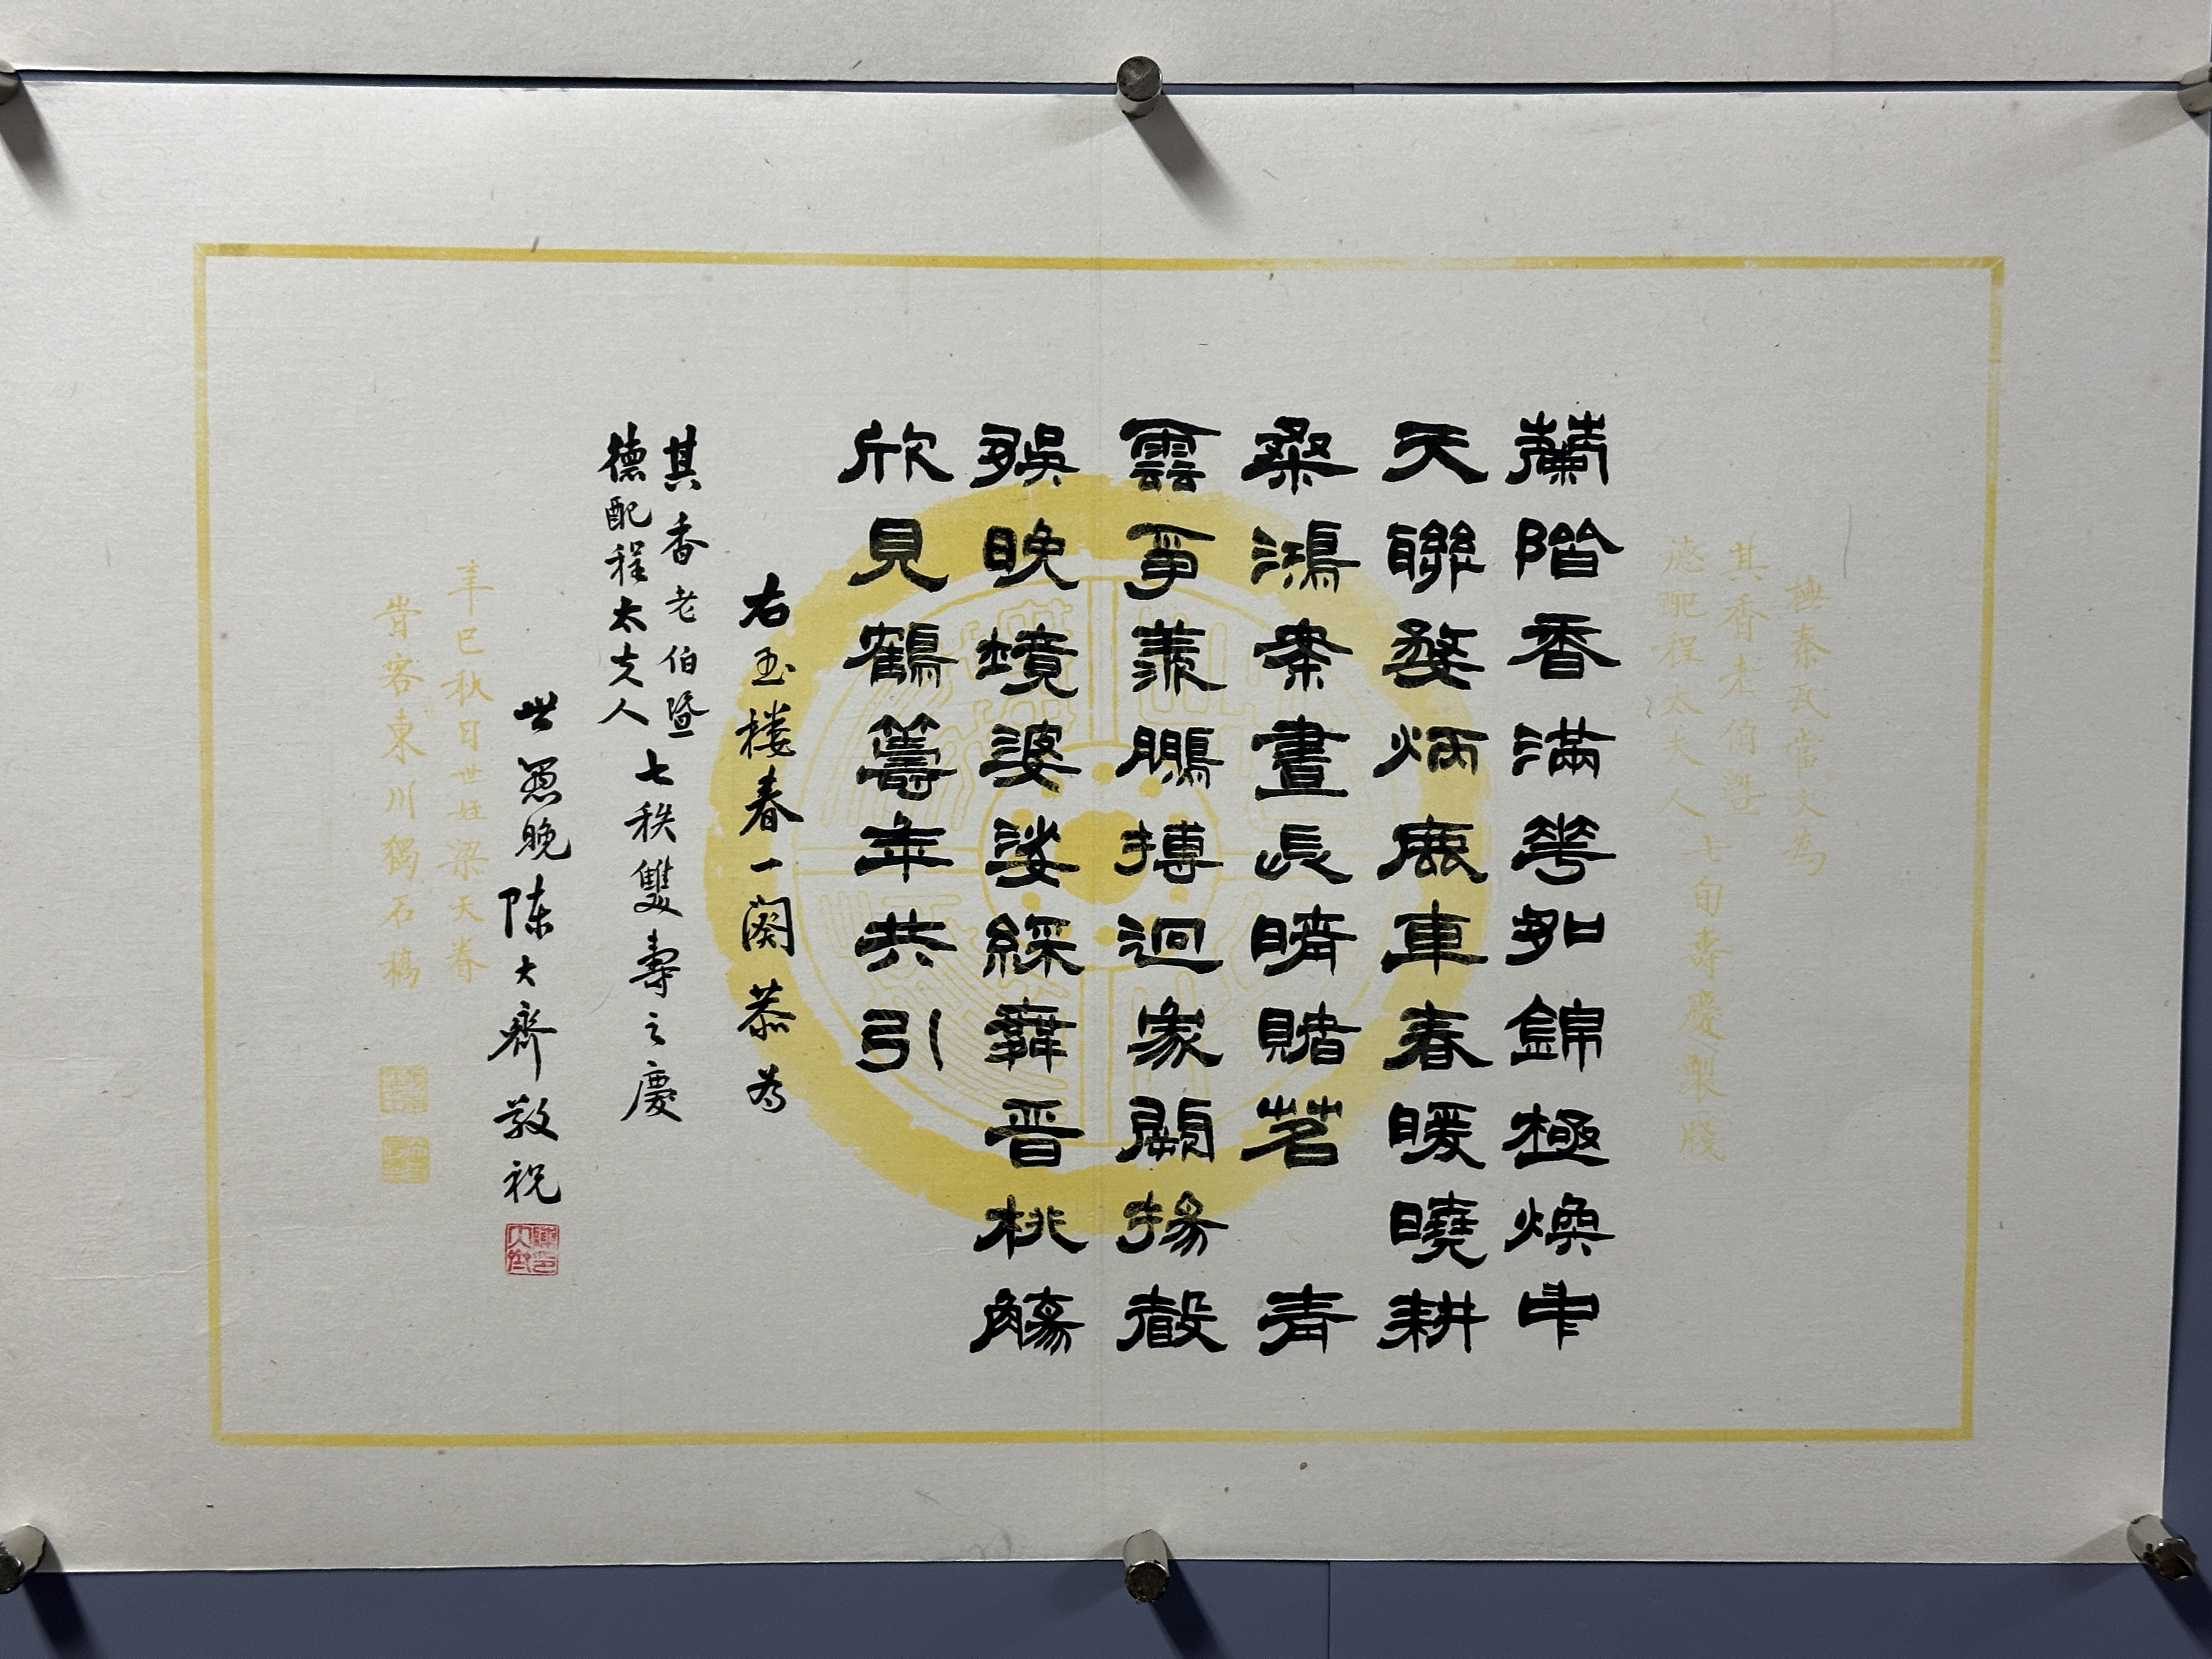 橅秦瓦當文為
其香老伯曁
德配程太夫人
七旬壽慶製牋
蘭階香滿花如錦極煥中
天聯婺炳鹿車春暖曉耕
桑鴻案晝長晴賭茗 青
雲爭羨鵬搏迥象闕揚
娛晚境婆娑綵舞晉桃觴
欣見鶴籌年共引
右玉楼春一闋恭為
其香老伯暨
德配程太夫人
七秩雙壽之慶
世愚晚陳大齊敬祝
辛巳秋日世姪梁天眷
旹客東川獨石橋